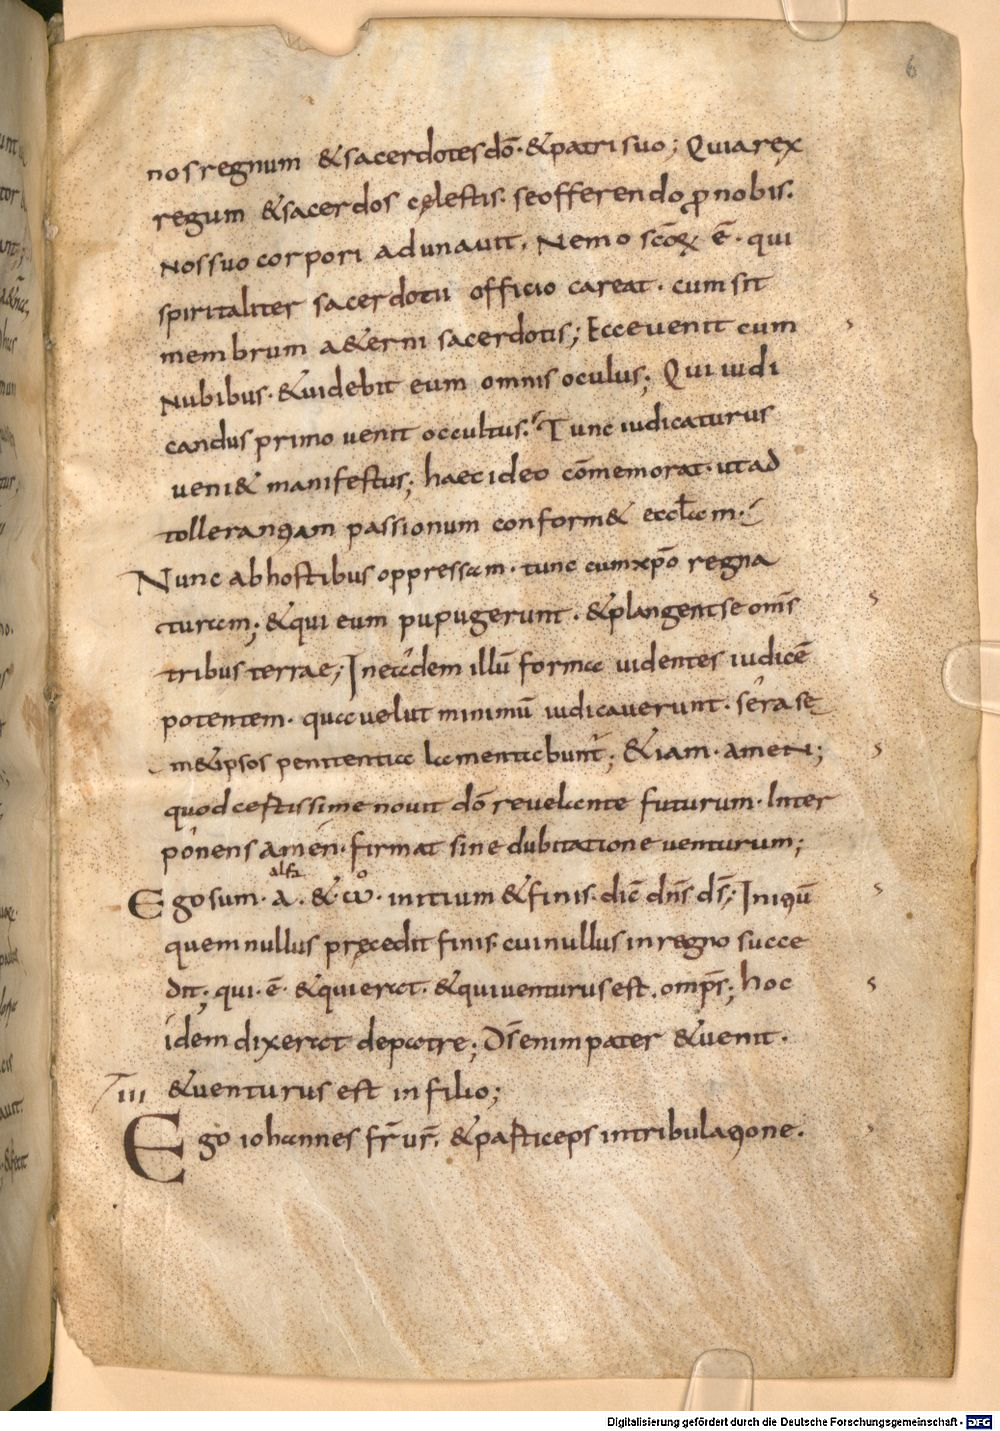 6
nos regnum & sacerdotes dō· & patri suo; Quia rex
regum & sacerdos cęlestis· se offerendo ꝓ nobis·
Nos suo corpori adunauit· Nemo scōꝝ ē· qui
spiritaliter sacerdotii officio careat· cum sit
membrum a&erni sacerdotis; Ecce uenit cum
Nubibus· & uidebit eum omnis oculus; Qui iudi
candus primo uenit occultus· Tunc iudicaturus
ueni& manifestus; haec ideo cōmemorat· ut ad
tolleran passionum conform& ecclam·
Nunc ab hostibus oppressam· tunc cum xpō regna
turam; & qui eum pupugerunt· & plangent se omīs
tribus terrae; In eadem illū forma uidentes iudicē
potentem· qua uelut minimū iudicauerunt· sera se
m&ipsos penitentia lamentabunt; &iam· ameN;
quod certissime nouit dō reuelante futurum· Inter
ponens amen· firmat sine dubitatione uenturum;
alfa o
Ego sum· a· & ω· initium & finis· dic̄ dn̄s ds̄; Iniqū
quem nullus pręcedit finis· cui nullus in regno succe
dit; qui· ē· & qui erat· & qui uenturus est· omp̄s; hoc
idem dixerat de patre; Ds̄ enim pater & uenit·
III & uenturus est in filio;
Ego iohannes fr̄ ur̄· & pasticeps in tribulaqone·
Digitalisierung gefördert durch die Deutsche Forschungsgemeinschaft - DFG